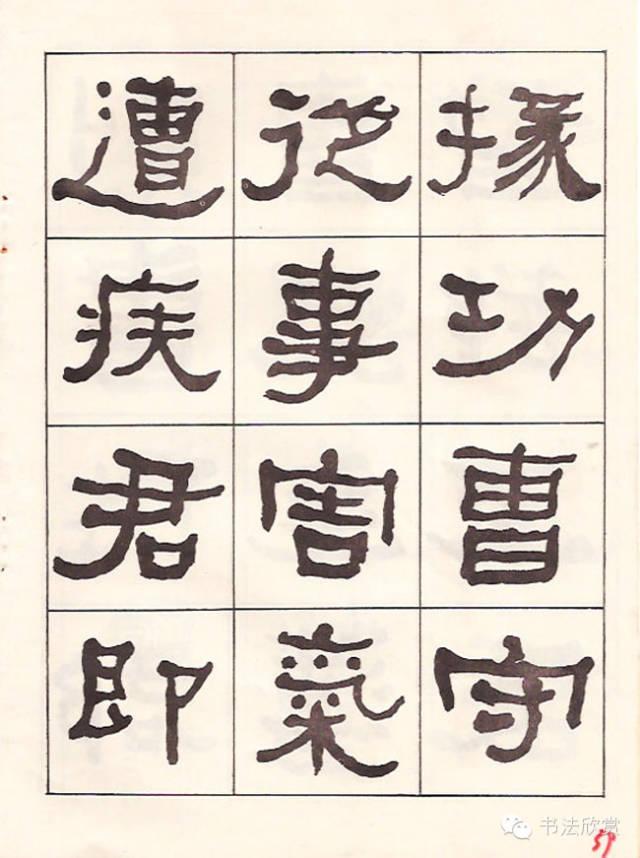 掾功曹守
從事害氣
遭疾君即
书法欣赏
59